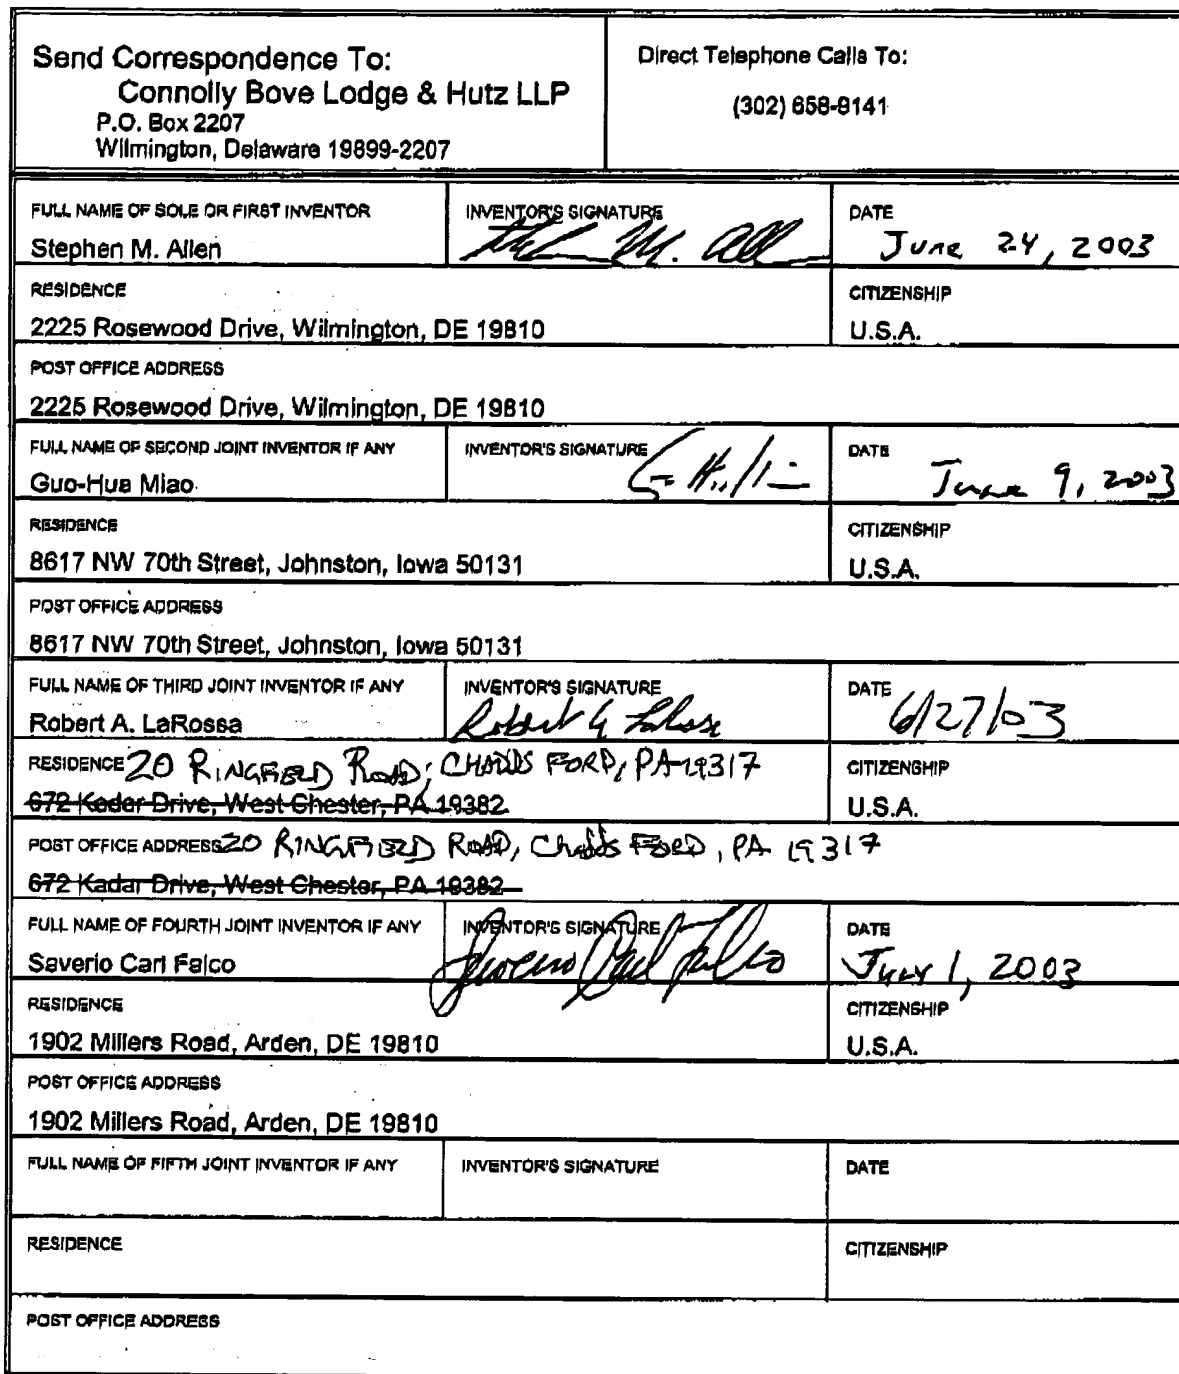 Send Correspondence To:
Connolly Bove Lodge & Hutz LLP
P.O. Box 2207
Wilmington, Delaware 19899-2207
Direct Telephone Calls To:
(302) 658-9141
FULL NAME OF SOLE OR FIRST INVENTOR
Stephen M. Allen
INVENTOR'S SIGNATURE
M. All
DATE
June 24, 2003
RESIDENCE
2225 Rosewood Drive, Wilmington, DE 19810
CITIZENSHIP
U.S.A.
POST OFFICE ADDRESS
2225 Rosewood Drive, Wilmington, DE 19810
FULL NAME OF SECOND JOINT INVENTOR IF ANY
Guo-Hua Miao
INVENTOR'S SIGNATURE
DATE
June 9, 2003
RESIDENCE
8617 NW 70th Street, Johnston, Iowa 50131
CITIZENSHIP
U.S.A.
POST OFFICE ADDRESS
8617 NW 70th Street, Johnston, Iowa 50131
FULL NAME OF THIRD JOINT INVENTOR IF ANY
Robert A. LaRossa
INVENTOR'S SIGNATURE
Robert A LaRossa
DATE
6/27/03
RESIDENCE 20 RINGFIELD ROAD; CHADDS FORD, PA 19317
672 Kadar Drive, West Chester, PA 19382
CITIZENSHIP
U.S.A.
POST OFFICE ADDRESS 20 RINGFIELD ROAD, Chadds FORD, PA 19317
672 Kadar Drive, West Chester, PA 19382
FULL NAME OF FOURTH JOINT INVENTOR IF ANY
Saverio Carl Falco
INVENTOR'S SIGNATURE
Saverio Carl Falco
DATE
July 1, 2003
RESIDENCE
1902 Millers Road, Arden, DE 19810
CITIZENSHIP
U.S.A.
POST OFFICE ADDRESS
1902 Millers Road, Arden, DE 19810
FULL NAME OF FIFTH JOINT INVENTOR IF ANY
INVENTOR'S SIGNATURE
DATE
RESIDENCE
CITIZENSHIP
POST OFFICE ADDRESS